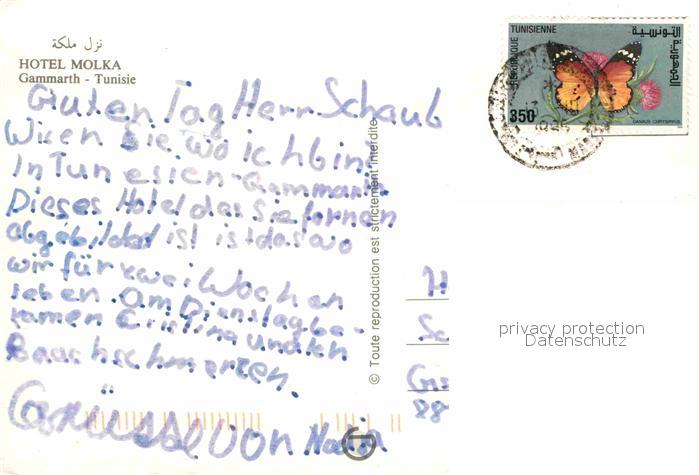 نزل ملكة
HOTEL MOLKA
Gammarth - Tunisie
Guten Tag Herr Schaub
Wisen Sie wo ich bin
In Tunesien-Gammarth
Dieses Hotel das Sie fornen
abgebildet ist ist das wo
wir für zwei Wochen
leben. Am Dienstag be-
kamen Cristina und ich
Bauchschmerzen.
Grüsse von
© Toute reproduction est strictement interdite
REPUBLIQUE TUNISIENNE
الجمهورية التونسية
350
DANAUS CHRYSIPPUS
H
Sc
88
privacy protection
Datenschutz